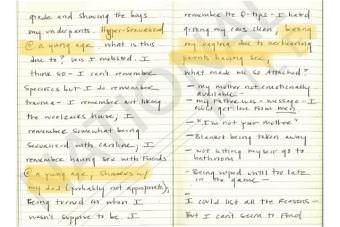 grade and showing the boys
my underpants. Hyper-sexualized
@ a young age. What is this
due to? Was I molested. I
think so - I can't remember
specifics but I do remember
trauma - I remember not liking
the house; I
remember somewhat being
sexualized with; I
remember having sex with friends
@ a young age; showers w/
my dad (probably not appropriate).
Being turned on when I
wasn't suppose to be. I
remember the Q-tips - I hated
getting my ears clean;
my due to
parents having sex.
What made me so attached?
- my mother not emotionally
available -
- my father was - message - I
could get love from men
- "I'm not your mother"
- Blanket being taken away
- not letting myself go to
bathroom
- Being until to late
in the game -
I could list all the reasons -
But I can't seem to find